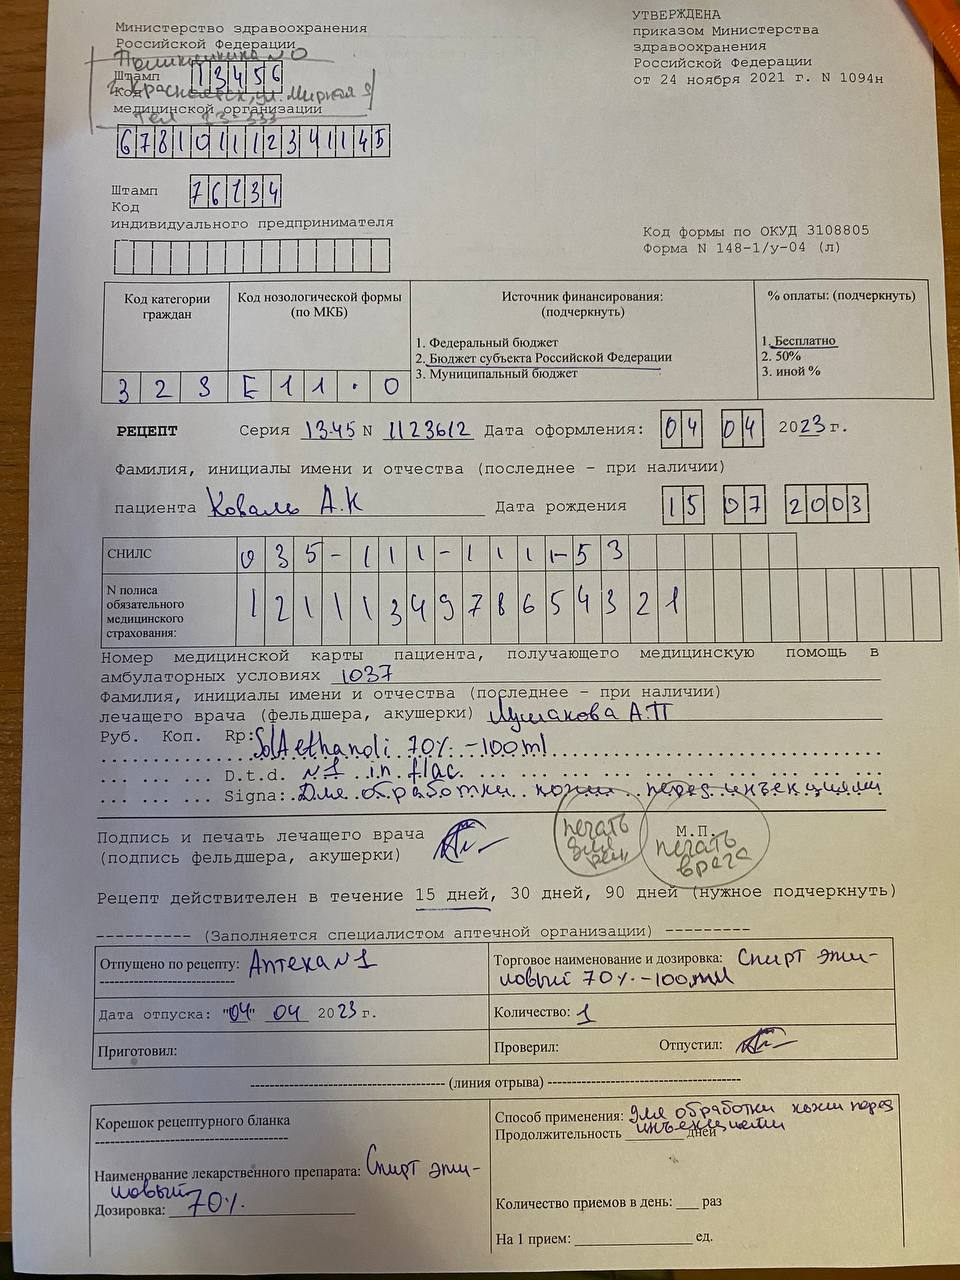 Министерство здравоохранения
Российской Федерации
Поликлиника N0
Штамп 13456
г. Красноярск, ул. Мирная 9
Код
медицинской организации
Тел 23-333
678101112341145
Штамп 76134
Код
индивидуального предпринимателя
УТВЕРЖДЕНА
приказом Министерства
здравоохранения
Российской Федерации
от 24 ноября 2021 г. N 1094н
Код формы по ОКУД 3108805
Форма N 148-1/у-04 (л)
Код категории граждан
323
Код нозологической формы (по МКБ)
E11.0
Источник финансирования:
(подчеркнуть)
1. Федеральный бюджет
2. Бюджет субъекта Российской Федерации
3. Муниципальный бюджет
% оплаты: (подчеркнуть)
1. Бесплатно
2. 50%
3. иной %
РЕЦЕПТ Серия 1345 N 1123612 Дата оформления: 04 04 2023 г.
Фамилия, инициалы имени и отчества (последнее – при наличии)
пациента Коваль А.К Дата рождения 15 07 2003
СНИЛС 035-111-111-53
N полиса обязательного медицинского страхования: 1211134978654321
Номер медицинской карты пациента, получающего медицинскую помощь в
амбулаторных условиях 1037
Фамилия, инициалы имени и отчества (последнее – при наличии)
лечащего врача (фельдшера, акушерки) Лушакова А.П
Руб. Коп. Rp: Sol Aethanoli 70% -100ml
D.t.d. N1 in flac.
Signa: Для обработки кожи перед инъекциями
Подпись и печать лечащего врача
(подпись фельдшера, акушерки)
М.П.
печать для рец.
печать врача
Рецепт действителен в течение 15 дней, 30 дней, 90 дней (нужное подчеркнуть)
---------- (Заполняется специалистом аптечной организации) ---------
Отпущено по рецепту: Аптека N1
Торговое наименование и дозировка: Спирт эти-
ловый 70% -100мл
Дата отпуска: "04" 04 2023 г.
Количество: 1
Приготовил:
Проверил: Отпустил:
(линия отрыва)
Корешок рецептурного бланка
Наименование лекарственного препарата: Спирт эти-
ловый
Дозировка: 70%
Способ применения: для обработки кожи перед
инъекциями
Продолжительность ____ дней
Количество приемов в день: ___ раз
На 1 прием: ____ ед.